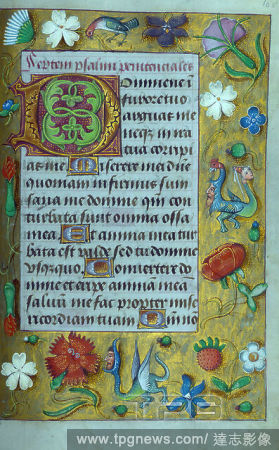 Septem psalmi penitenciales
Domine ne in
furore tuo
arguas me
neque in ira
tua corripi
as me Miserere mei domine
quoniam infirmus sum
sana me domine quoniam con
turbata sunt omnia ossa
mea Et anima mea tur
bata est valde sed tu domine
usquequo Convertere do
mine et eripe animam mea
salvum me fac propter mise
ricordiam tuam Quoniam no
TPG
www.tpgnews.com/達志影像